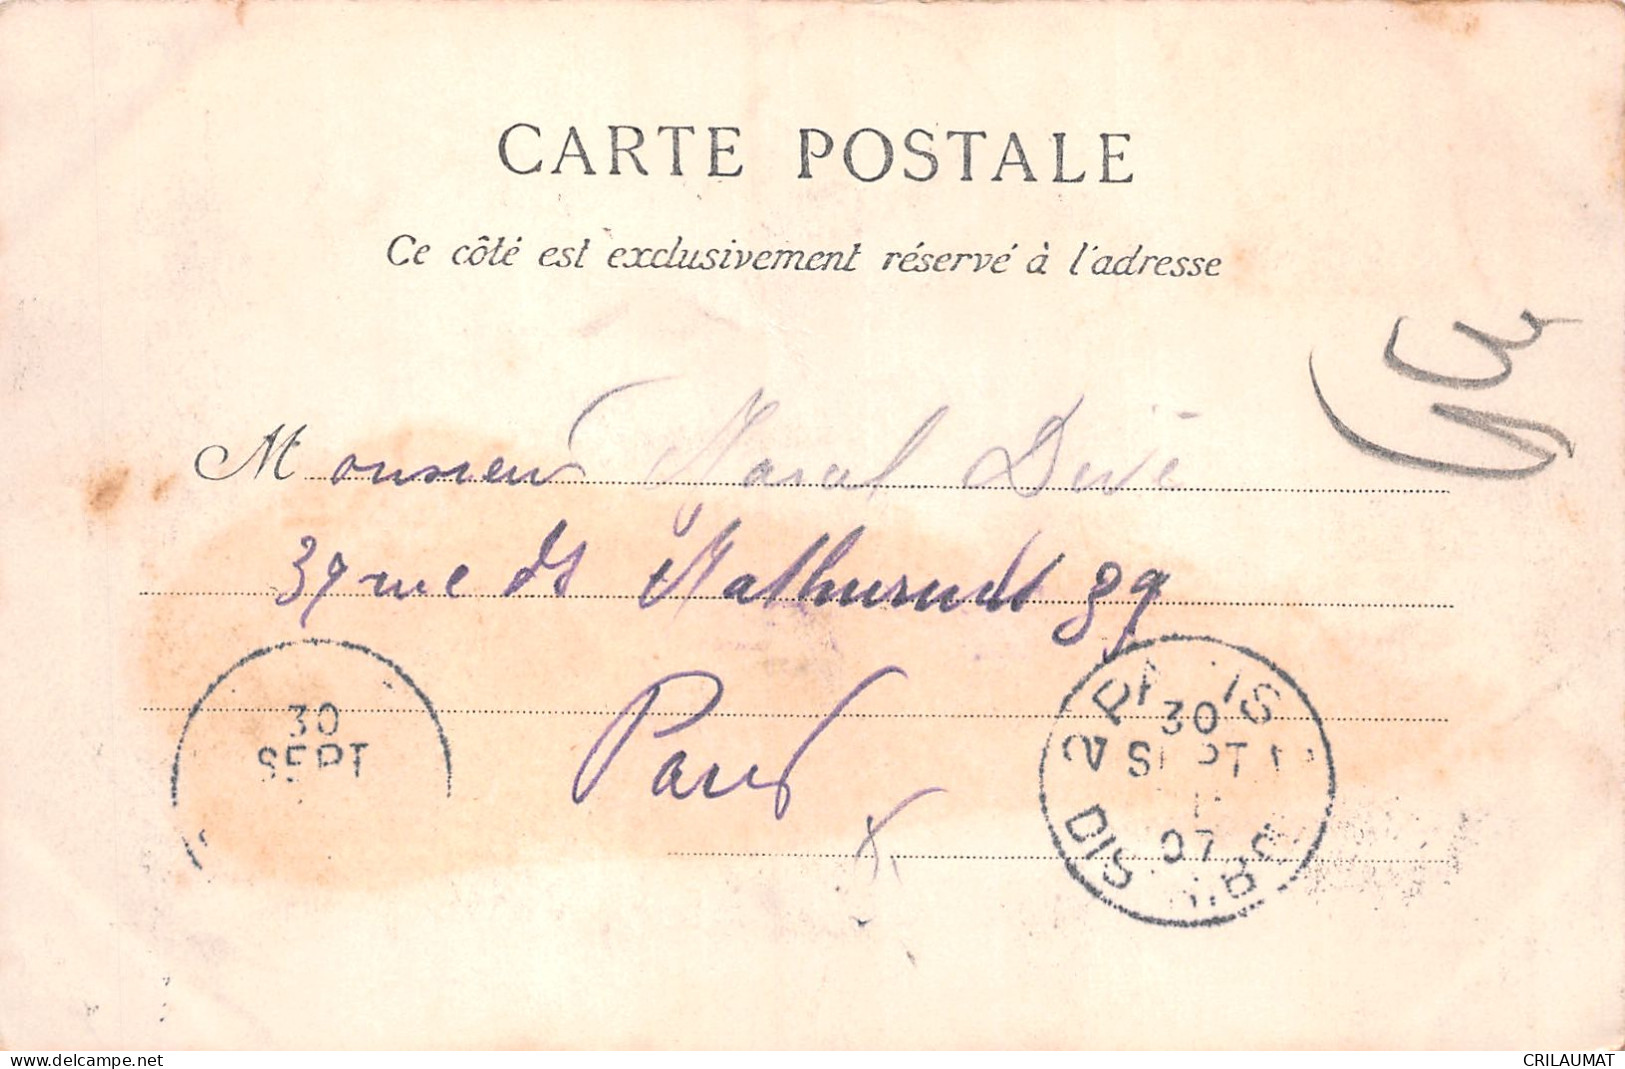 CARTE POSTALE
Ce côté est exclusivement réservé à l'adresse
Monsieur
39 rue ds Mathurins 39
Paris
30
SEPT
2 PARIS
30
SEPT
07
DISTRIB
www.delcampe.net
CRILAUMAT